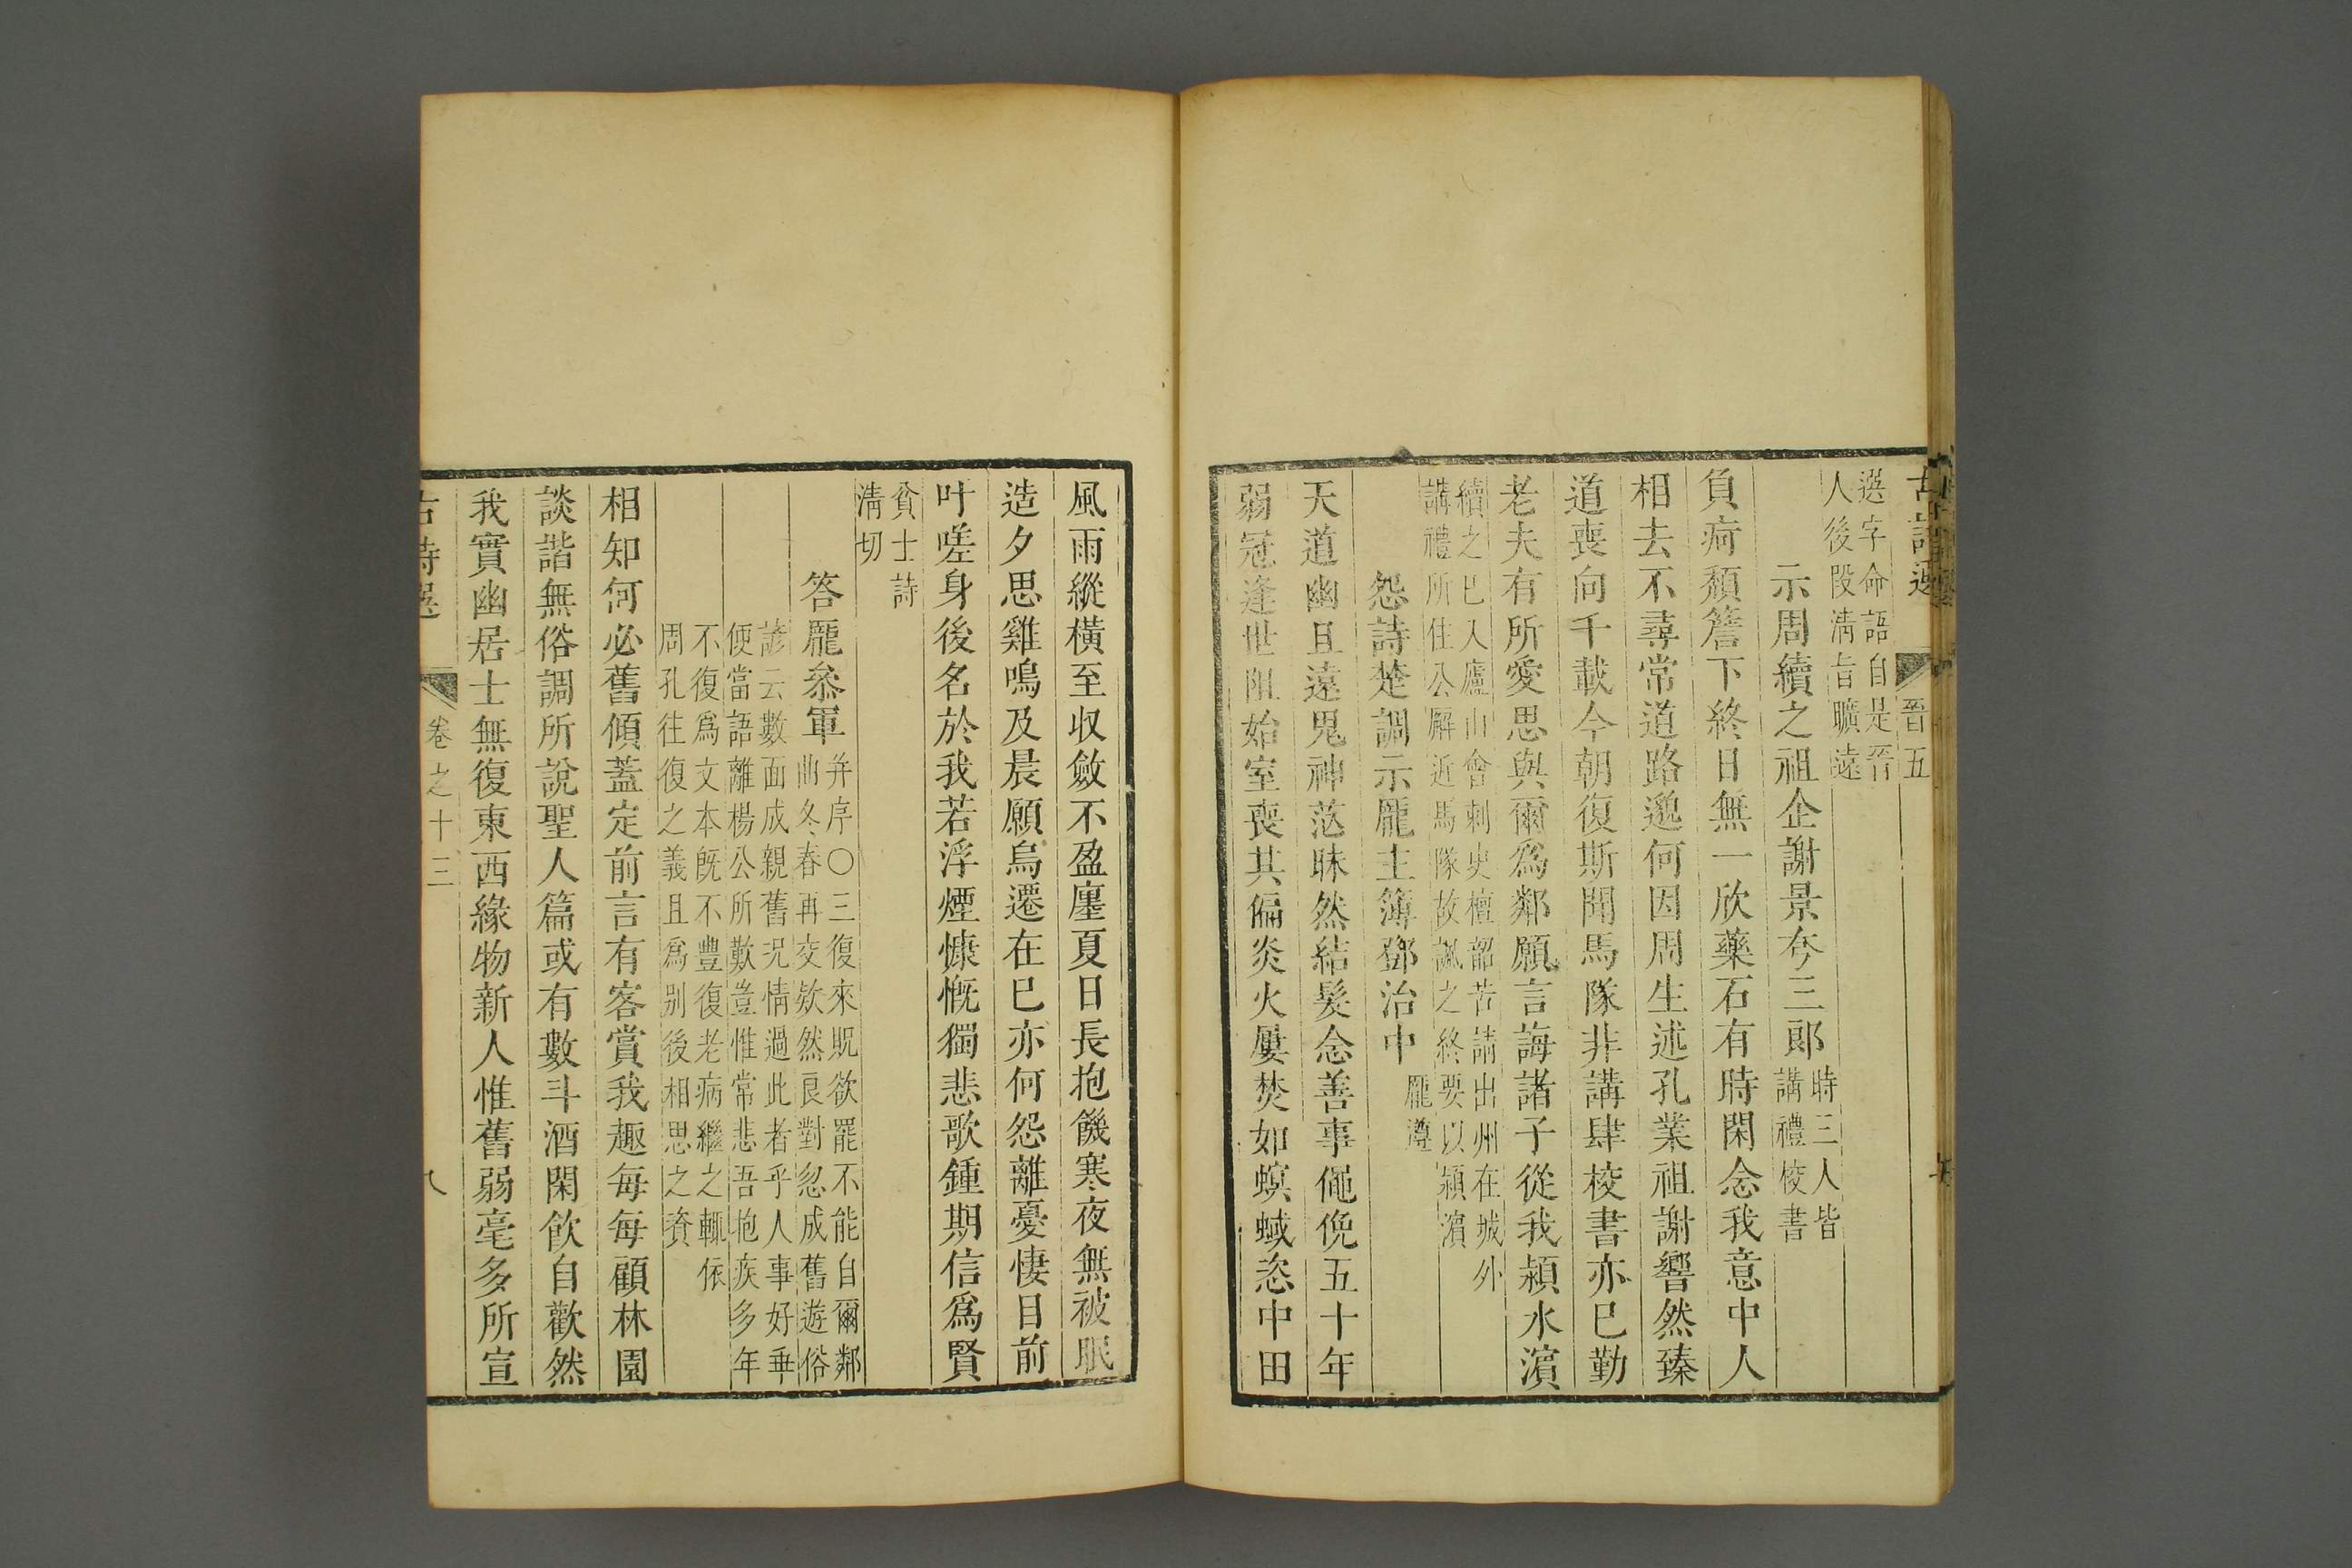 古詩選 晉五
選字命語自是晉
人後段淸旨曠遠
示周續之祖企謝景夷三郞
時三人皆
講禮校書
負疴頹簷下終日無一欣藥石有時閑念我意中人
相去不尋常道路邈何因周生述孔業祖謝響然臻
道喪向千載今朝復斯聞馬隊非講肆校書亦已勤
老夫有所愛思與爾爲鄰願言誨諸子從我潁水濱
續之已入廬山會刺史檀韶苦請出州在城外
講禮所住公廨近馬隊故諷之終要以潁濱
怨詩楚調示龐主簿鄧治中
龐遵
天道幽且遠鬼神茫昧然結髮念善事僶俛五十年
弱冠逢世阻始室喪其偏炎火屢焚如螟蜮恣中田
風雨縱橫至收斂不盈廛夏日長抱饑寒夜無被眠
造夕思雞鳴及晨願烏遷在已亦何怨離憂悽目前
吁嗟身後名於我若浮煙慷慨獨悲歌鍾期信爲賢
貧士詩
淸切
答龐參軍
并序〇三復來貺欲罷不能自爾鄰
曲冬春再交欵然良對忽成舊遊俗
諺云數面成親舊况情過此者乎人事好乖
便當語離楊公所歎豈惟常悲吾抱疾多年
不復爲文本旣不豐復老病繼之輒依
周孔往復之義且爲別後相思之資
相知何必舊傾蓋定前言有客賞我趣每每顧林園
談諧無俗調所說聖人篇或有數斗酒閑飮自歡然
我實幽居士無復東西緣物新人惟舊弱毫多所宣
古詩選 卷之十三 八